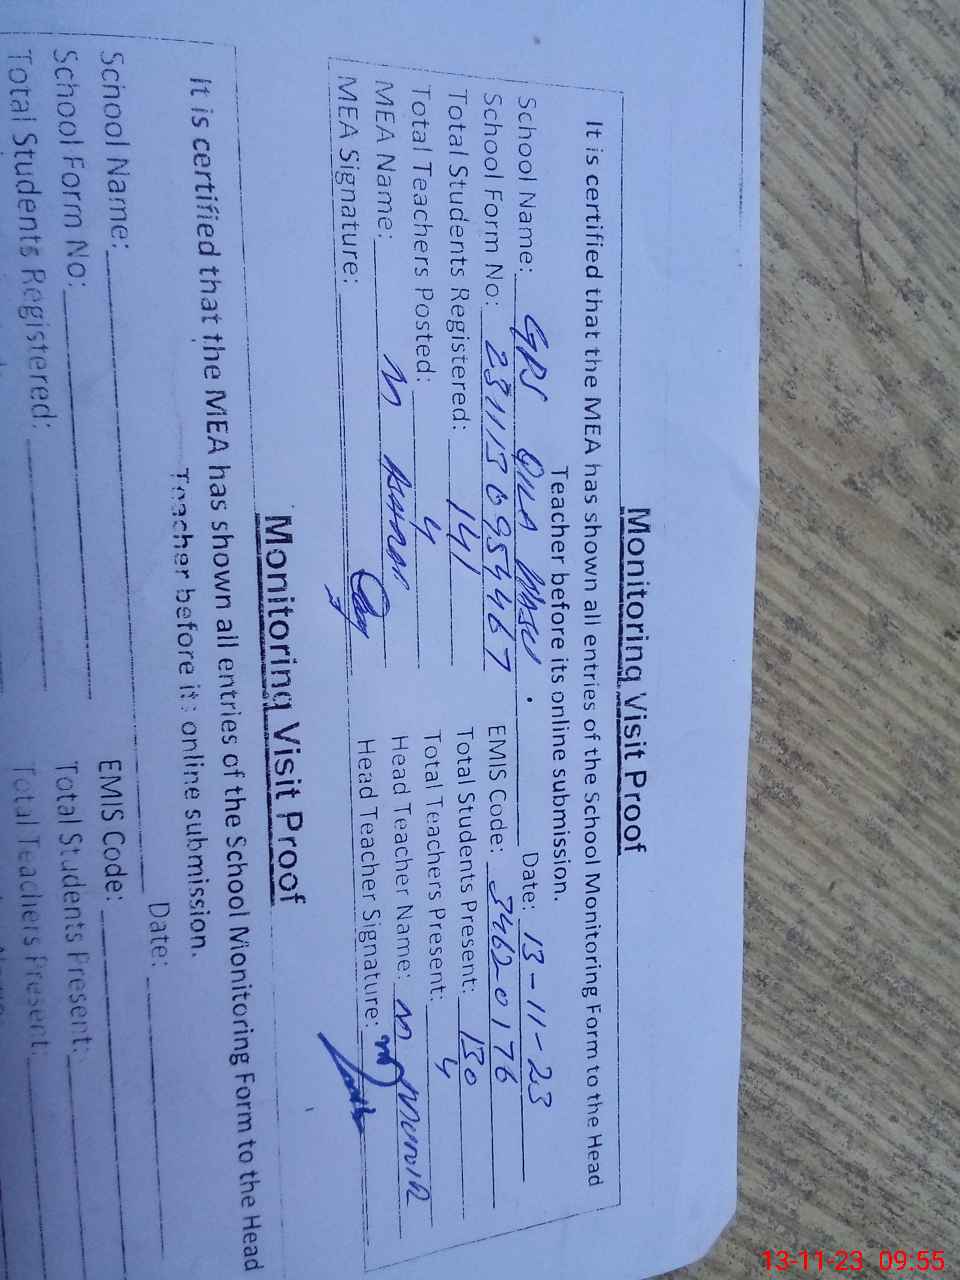 Monitoring Visit Proof
It is certified that the MEA has shown all entries of the School Monitoring Form to the Head
Teacher before its online submission.
School Name: GPS Qila Date: 13-11-23
School Form No: 231113095467 EMIS Code: 34620176
Total Students Registered: 141 Total Students Present: 130
Total Teachers Posted: 4 Total Teachers Present: 4
MEA Name: M Head Teacher Name: M Munir
MEA Signature: Head Teacher Signature:
Monitoring Visit Proof
It is certified that the MEA has shown all entries of the School Monitoring Form to the Head
Teacher before its online submission.
Date:
School Name: EMIS Code:
School Form No: Total Students Present:
Total Students Registered: Total Teachers Present:
13-11-23 09:55